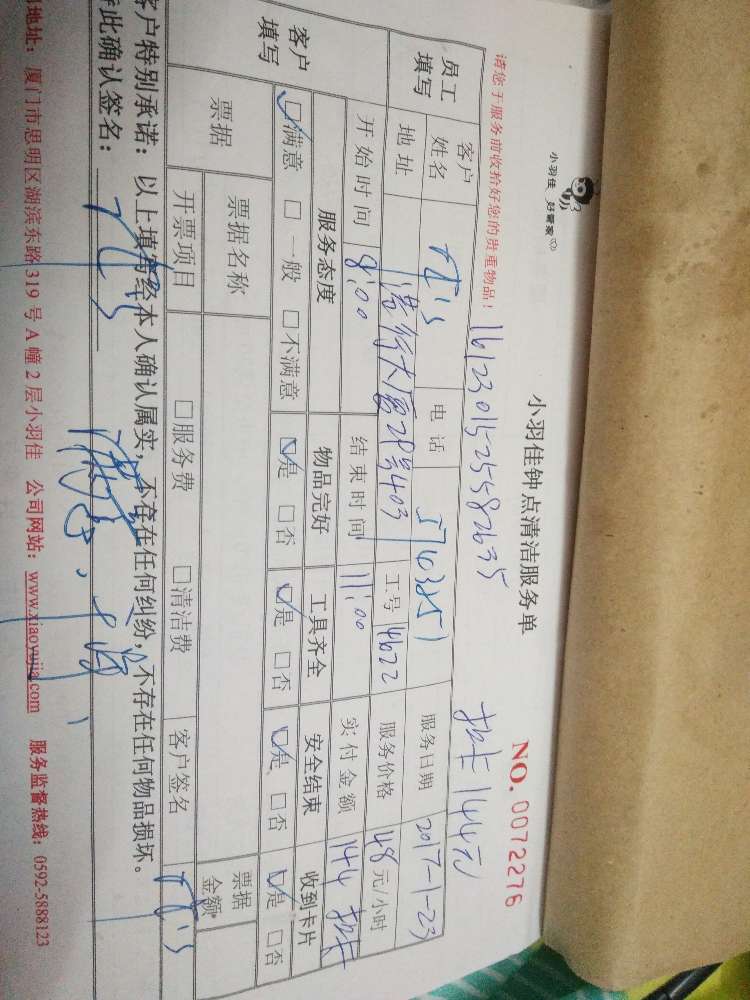 小羽佳 好管家
小羽佳钟点清洁服务单
NO. 0072276
请您于服务前收拾好您的贵重物品！
1612301525582635
扣卡144元
员工填写
客户姓名
电话
5703851
服务日期
2017-1-23
地址
港务大厦28号403
工号
4622
服务价格
48元/小时
开始时间
8:00
结束时间
11:00
实付金额
144 扣卡
客户填写
服务态度 物品完好 工具齐全 安全结束 收到卡片
☑满意 □一般 □不满意 ☑是 □否 ☑是 □否 ☑是 □否 ☑是 □否
票据
票据名称
票据金额
开票项目
□服务费 □清洁费
客户签名
客户特别承诺：以上填写经本人确认属实，不存在任何纠纷，不存在任何物品损坏。
此确认签名：
地址：厦门市思明区湖滨东路319号A幢2层小羽佳 公司网站：www.xiaoyujia.com 服务监督热线：0592-5888123